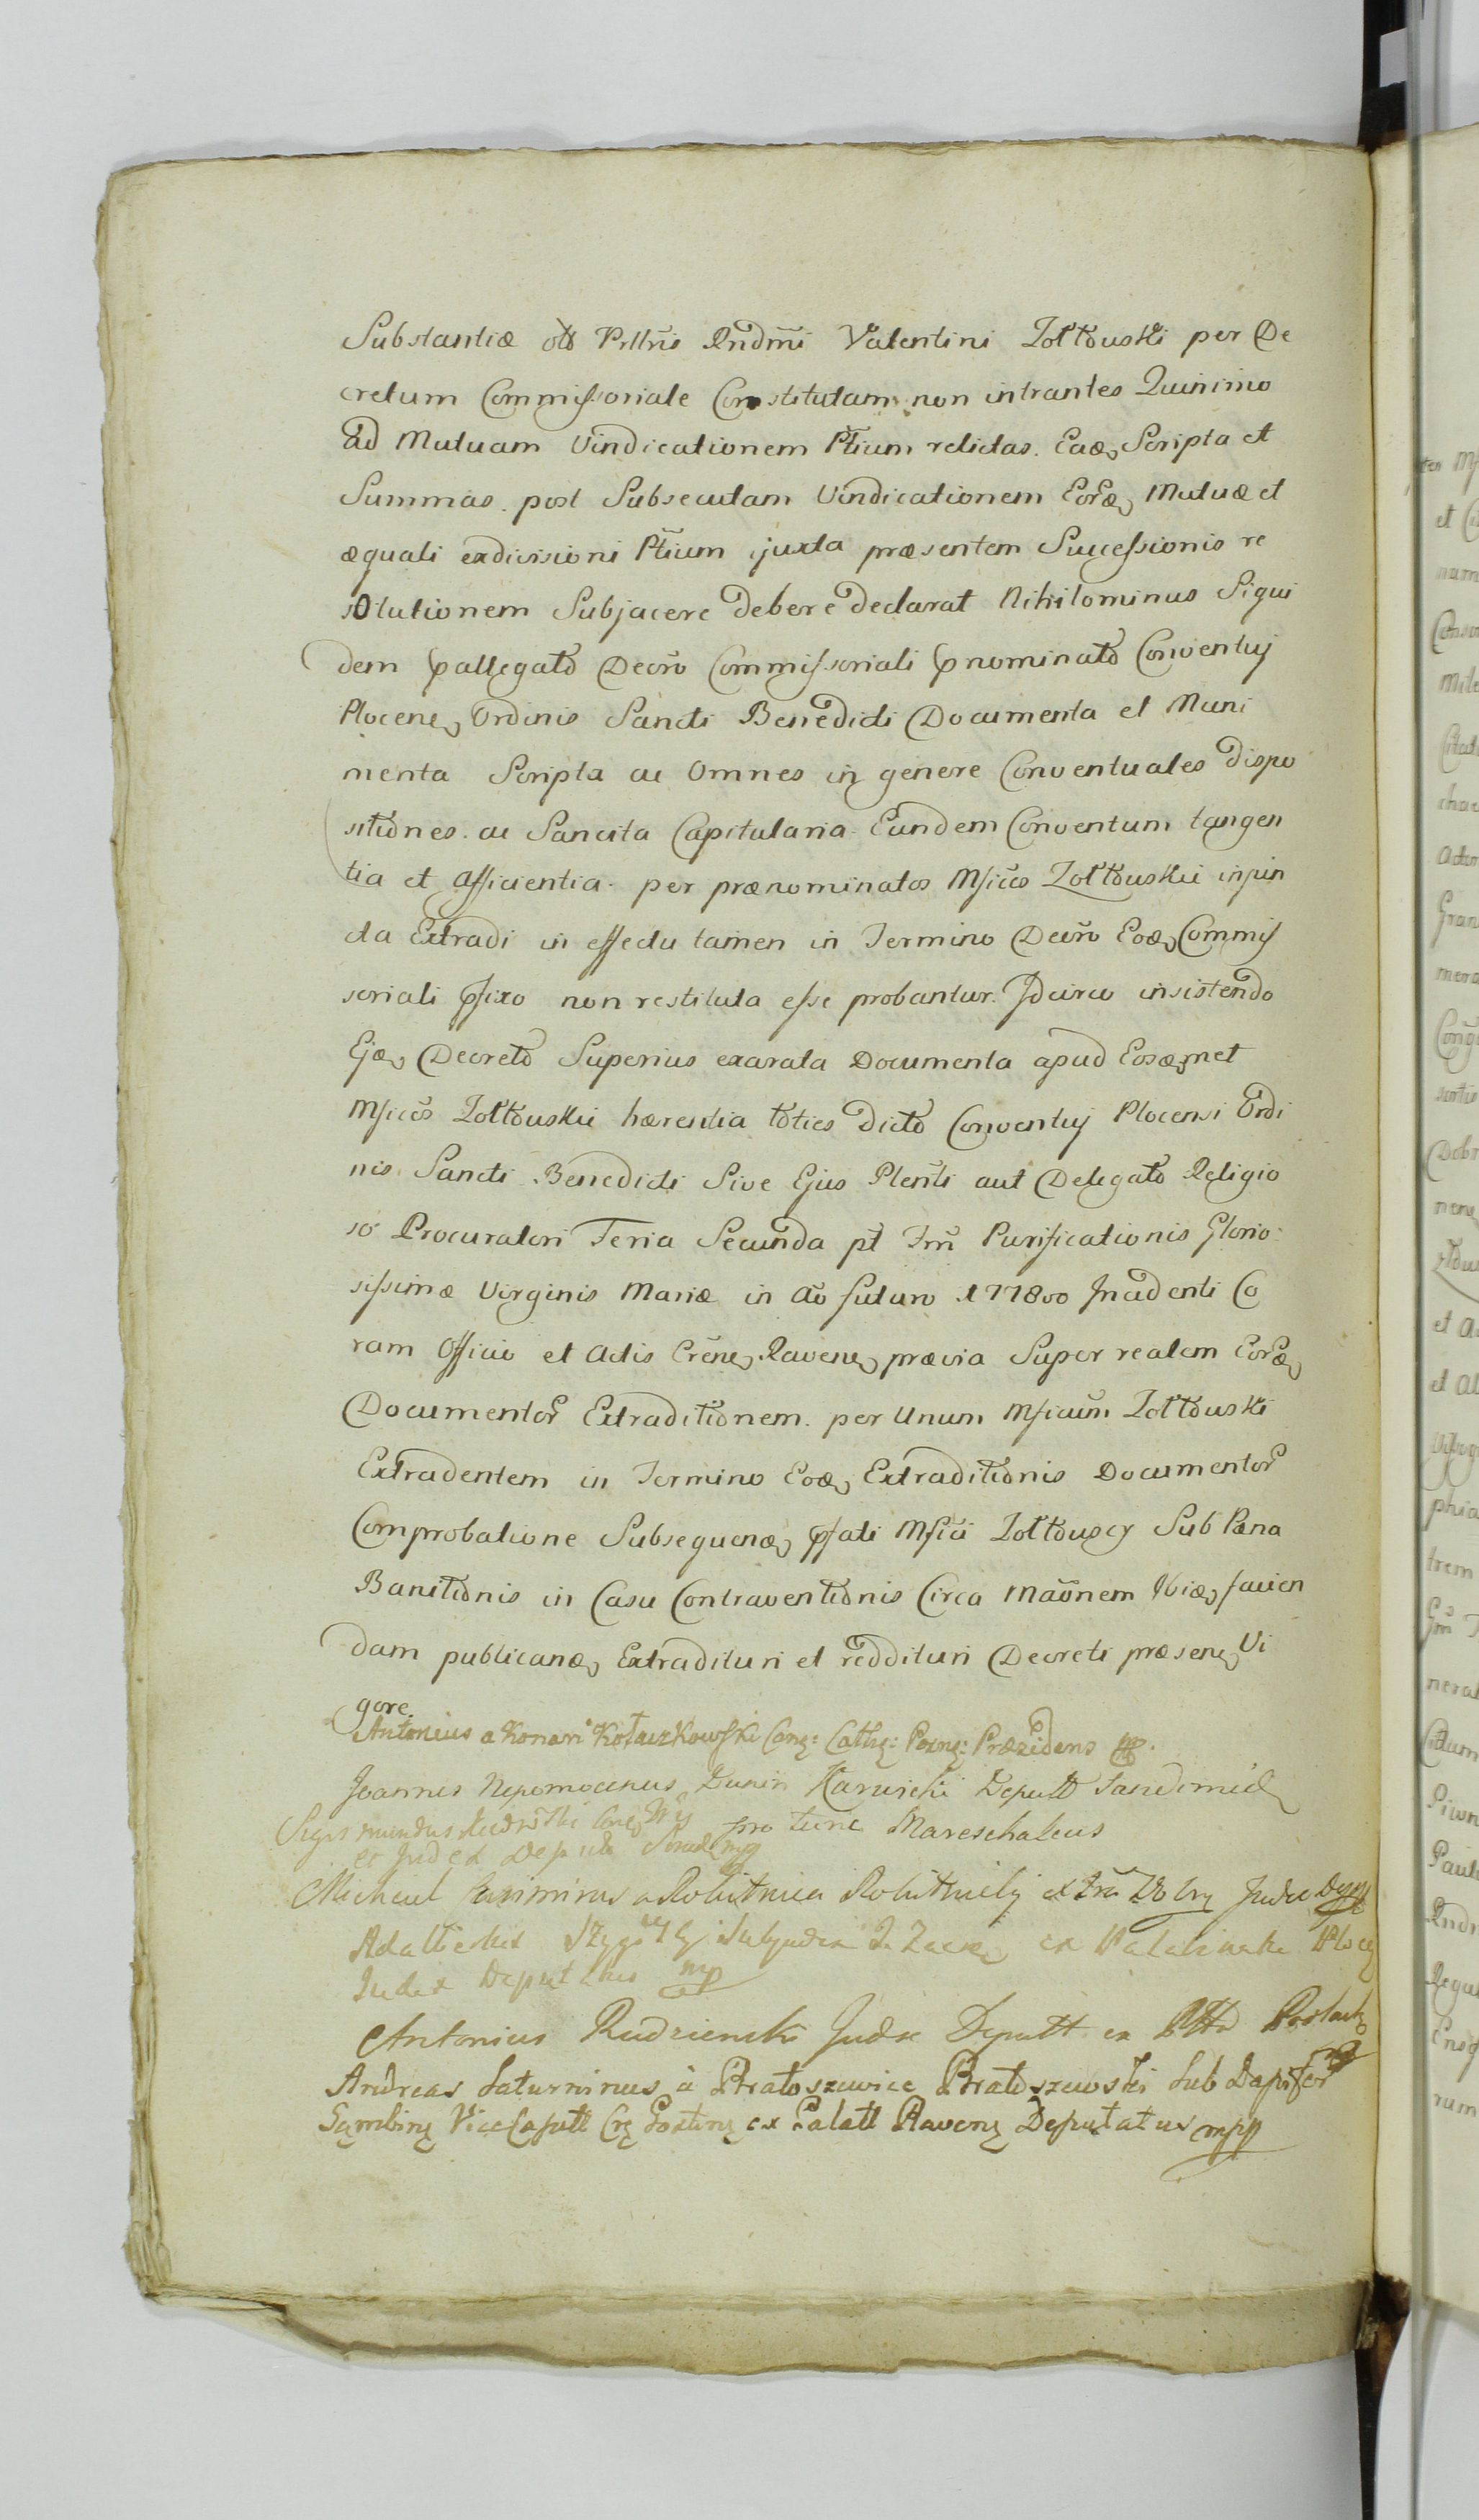 Substantiæ olo Pttris Rndmi Valentini Zołtowski per De
cretum Commissoriale Constitutam non intrantes Quinimo
ad Mutuam Vindicationem Ptium relictas. Eaq Scripta et
Summas. post Subsecutam Vindicationem Eorq Mutuæ et
æquali exdivisioni Ptium juxta præsentem Successionis re
solutionem Subjacere debere declarat Nihilominus Siqui
dem pallegato Decro Commissoriali pnominato Conventuj
Plocen Ordinis Sancti Benedicti Documenta et Muni
menta Scripta ac Omnes in genere Conventuales dispo
sitiones. ac Sancita Capitularia Eundem Conventum tangen
tia et afficientia. per prænominatos Mficos Zołtouskie injun
cta Extradi in effectu tamen in Termino Decro Eoq Commis
soriali pfixo non restituta esse probantur. Idcirco insistendo
Ejq Decreto Superius exarata Documenta apud Eosqmet
Mficos Zołtouskie hærentia toties dicto Conventuj Plocensi Ordi
nis Sancti Benedicti Sive Ejus Plenti aut Delegato Religio
so Procuratori Feria Secunda pt Fm Purificationis Glorio:
sissimæ Virginis Mariæ in Ao futuro 177800 Incidenti Co
ram Officio et Actis Crene Ravene prævia Super realem Eorq
Documentor Extraditionem. per Unum Mficum Zołtouski
Extradentem in Termino Eoq Extraditionis Documentor
Comprobatione Subsequenq pfati Mfici Zołtouscy Sub Pæna
Banitionis in Casu Contraventionis Circa Maonem Ibiq facien
dam publicanq Extradituri et reddituri Decreti præsene Vi
gore.
Antonius a Konari Kołaczkowski Canq: Cathq: Poznq: Præsidens mp.
Joannes Nepomocenus Dunin Karwicki Deputt Sandomi
Sigismundus
pro tunc Mareschalcus
et Judex Deputa
Michael Casimirus a Robitnica Judex Dep
Subjudex ex Palatinatu Ploc
Judex Deputatus mp
Antonius Rudzienski Judex Deputt ex Podlach
Andreas Saturninus à Bratoszewice Bratoszewski Sub Dapifer
Gąmbinę ViceCaptt Crę Gostinę ex Palatt Ravenę Deputatus mpp